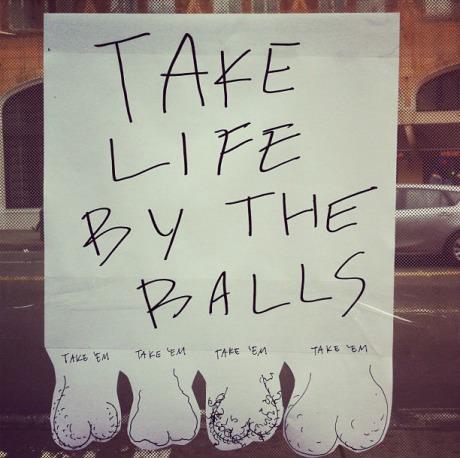 TAKE
LIFE
BY THE
BALLS
TAKE 'EM TAKE 'EM TAKE 'EM TAKE 'EM